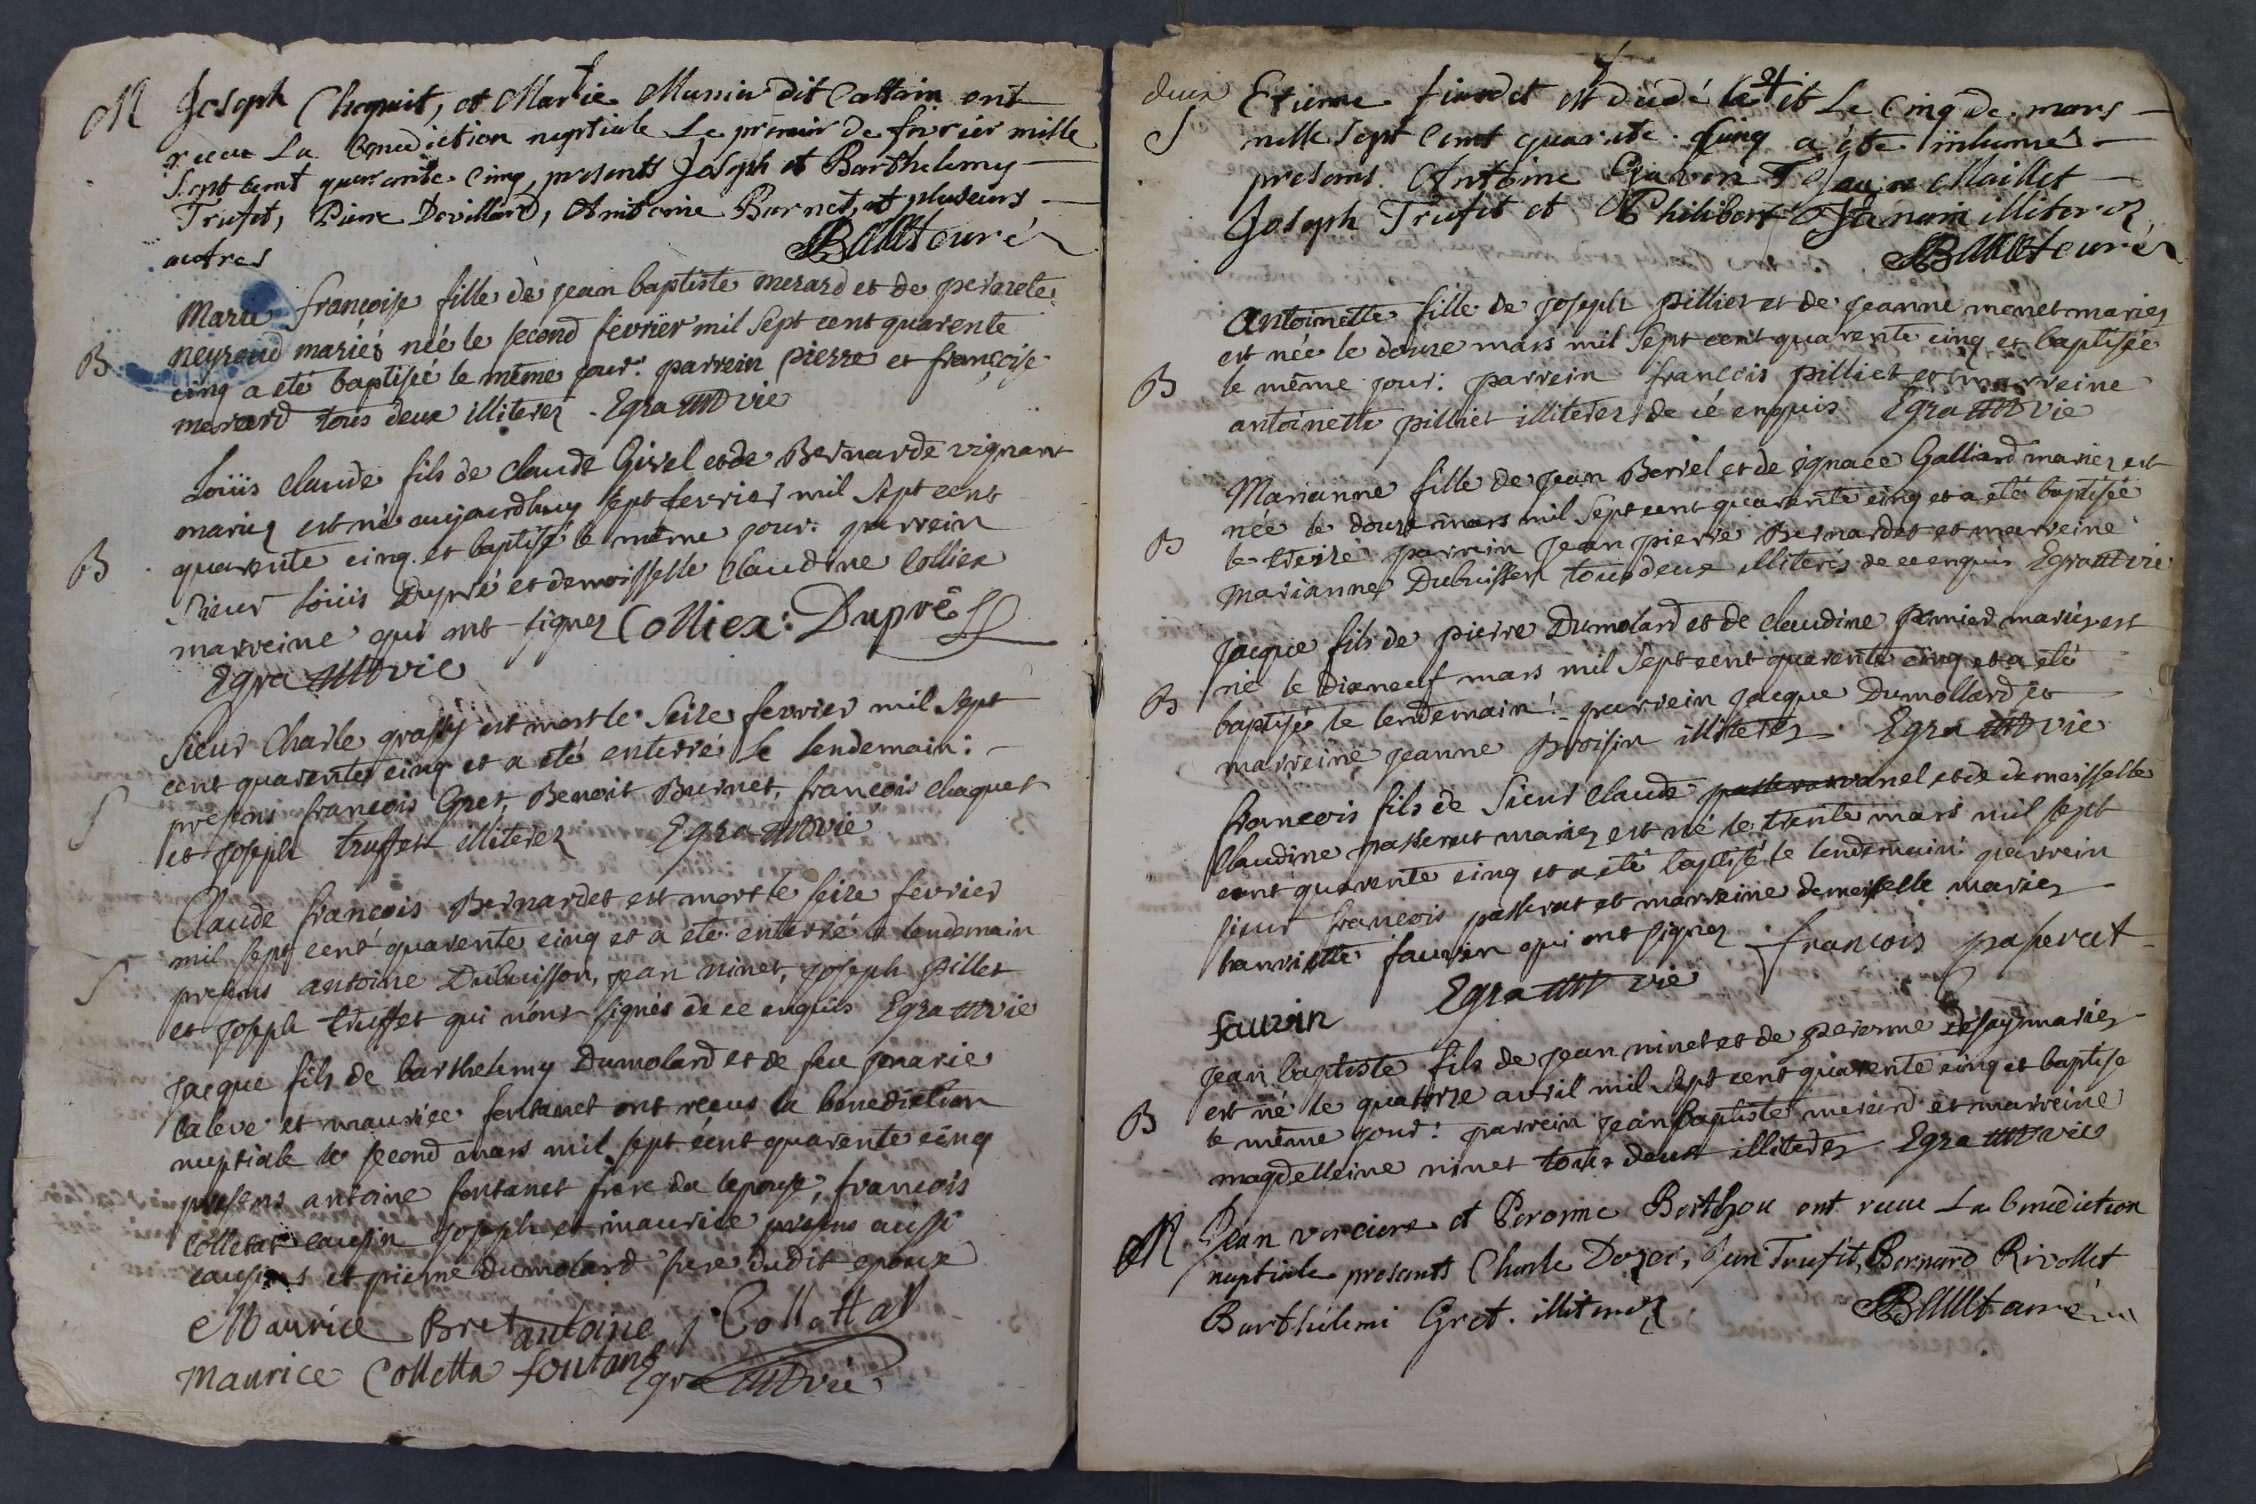 M Joseph Choquit, et Marie Munier dit Cattain ont
receu La benediction nuptiale Le premier de fevrier mille
Sept cent quarante cinq, presents Joseph et Barthelemy
Trufet, Pierre Devillard, Antoine Burnet, et pluseurs
autres
Ballet curé
Marie françoise fille de jean baptiste merard et de pernete
neyroud mariés née le second fevrier mil sept cent quarente
B cinq a eté baptisée le même jour: parrein pierre et françoise
merard tous deux illiterez. Egra vie
Loüis claude fils de claude Girel et de Bernarde vignant
mariez est né aujourdhuy sept fevrier mil sept cent
B quarente cinq et baptisé le même jour: parrein
sieur loüis Dupré et demoisselle claudine Colliex
marreine qui ont signez Colliex: Dupré
Egra vie
Sieur Charle grassy est mort le seize fevrier mil sept
cent quarente cinq et a eté enterré Le lendemain:
S presens francois Gret, Benoit Burnet, francois chaquet
et joseph truffet illiterez Egra vie
Claude françois Bernardet est mort le seize fevrier
mil sept cent quarente cinq et a eté enterré le lendemain
S presens antoine Dubuisson, jean ninet, joseph pillet
et joseph truffet qui n'ont signés de ce enquis Egra vie
jacque fils de barthelemy Dumolard et de feu
et maurice fontanet ont reçus la benediction
nuptiale le second mars mil sept cent quarente cinq
presens antoine fontanet frere de lepouse, francois
colletat cousin joseph et maurice presens aussi
cousins et pierre dumolard frere dudit epoux
Maurice Bret antoine Collattat
maurice Colletta fontane Egra vie
deux Etienne est dedé le 4 et Le cinq de mars
S mille sept cent quarante cinq a été inhumé
presens Antoine Jean Maillet
Joseph Trufet et Philibert Janain illiterez
Ballet curé
Antoinette fille de joseph pilliet et de jeanne monet mariez
est née le douze mars mil sept cent quarente cinq et baptisée
B le même jour: parrein francois pilliet et marreine
antoinette pilliet illiterez de cé enquis Egra vie
Marianne fille de jean Beriel et de ignace Galliard mariez est
née le douze mars mil sept cent quarente cinq et a eté baptisée
B le treize parrein jean pierre Bernardet et marreine
marianne Dubuisson tous deux illiterés de ce enquis Egra vie
jacque fils de pierre Dumolard et de claudine premier mariez est
né le dixneuf mars mil sept cent quarente cinq et a eté
B baptisé le lendemain: parrein jacque Dumollard et
marreine jeanne Broisin illiterez Egra vie
francois fils de sieur claude vanel et de demoisselle
claudine passerat mariez est né le trente mars mil sept
cent quarente cinq et a eté baptisé le lendemain parrein
sieur francois passerat et marreine demoiselle mariez
hanriette fauvin qui ont signez francois paserat
fauvin Egra vie
jean baptiste fils de jean ninet et de peronne dessaÿ mariez
est né le quatorze avril mil sept cent quarente cinq et baptisé
B le même jour: parrein jean baptiste merard et marreine
magdelleine ninet tous deux illiterez Egra vie
M Jean verciere et Peronne Berthou ont receu La benediction
nuptiale presents Charle Dozet, Jean Trufet, Bernard Rivollet
Barthélemi Gret. illiterez Ballet curé